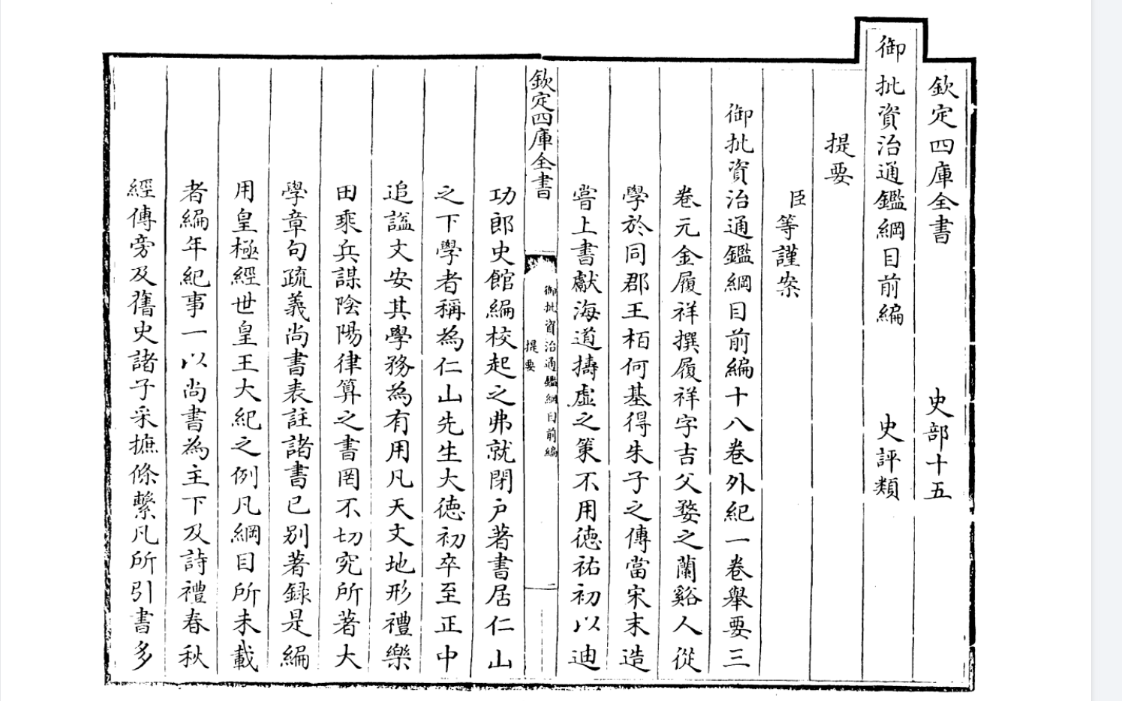 欽定四庫全書 史部十五
御批資治通鑑綱目前編 史評類
提要
臣等謹案
御批資治通鑑綱目前編十八卷外紀一卷舉要三
卷元金履祥撰履祥字吉父婺之蘭谿人從
學於同郡王柏何基得朱子之傳當宋末造
嘗上書獻海道擣虛之策不用徳祐初以迪
欽定四庫全書
御批資治通鑑綱目前編
提要
二
功郎史館編校起之弗就閉戶著書居仁山
之下學者稱為仁山先生大徳初卒至正中
追諡文安其學務為有用凡天文地形禮樂
田乘兵謀陰陽律算之書罔不切究所著大
學章句疏義尚書表註諸書已别著録是編
用皇極經世皇王大紀之例凡綱目所未載
者編年紀事一以尚書為主下及詩禮春秋
經傳旁及舊史諸子采摭條繫凡所引書多